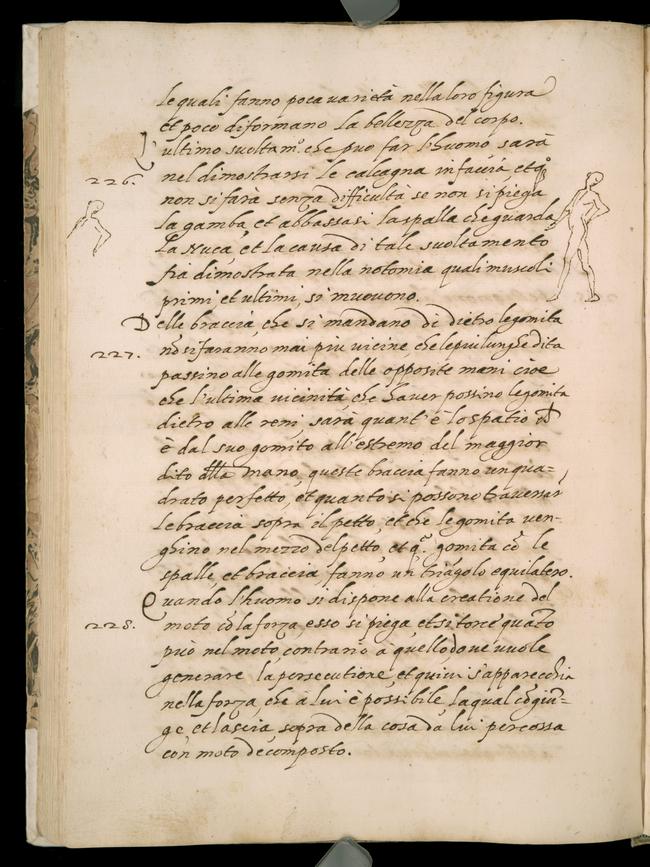 le quali fanno poca varietà nella loro figura
et poco diformano la bellezza del corpo.
L'ultimo suoltam.to che puo far l'huomo sarà
226. nel dimostrarsi le calcagna in faccia et q.o
non si farà senza difficultà se non si piega
la gamba et abbassasi la spalla che guarda
la Nuca, et la causa di tale suoltamento
fia dimostrata nella notomia quali muscoli
primi et ultimi, si muouono.
Delle braccia che si mandano di dietro le gomita
227. nõ si faranno mai piu vicine che le piu lunghe dita
passino alle gomita delle opposite mani cioè
che l'ultima vicinità che haver possino le gomita
dietro alle reni, sarà quant'è lo spatio ch'
è dal suo gomito all'estremo del maggior
dito della mano, queste braccia fanno un qua-
drato perfetto, et quanto si possono traversar
le braccia sopra il petto, et che le gomita ven-
ghino nel mezzo del petto, et q.e gomita cõ le
spalle, et braccia, fanno un triãgolo equilatero.
Quando l'huomo si dispone alla creatione del
228. moto cõ la forza, esso si piega et si torce quãto
può nel moto contrario à quello dove vuole
generare la persecutione, et quivi s'apparecchia
nella forza, che à lui è possibile la qual cõgiũ-
ge et lascia sopra della cosa da lui percossa
con moto decomposto.